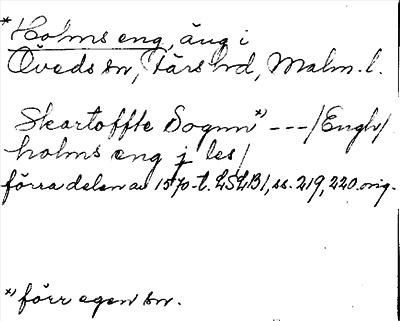 *Holms eng, äng i
Öveds sn, Färs hd, Malm. l.
Skartoffte Sognn *) --- /Engh/
holms eng j les/
förra delen av 1570-t. LSLB1, ss. 219, 220. orig.
*) förr egen sn.